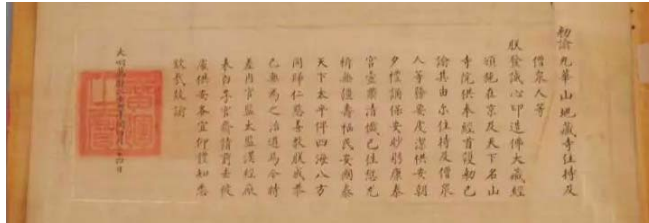 勅諭九華山地藏寺住持及
僧衆人等
朕發誠心印造佛大藏經
頒施在京及天下名山
寺院供奉經首護勅已
諭其由尔住持及僧衆
人等務要虔潔供安朝
夕禮誦保安眇躬康泰
宮壼肅清懺已往愆尤
祈無疆壽福民安國泰
天下太平俾四海八方
同歸仁慈善教朕成恭
己無為之治道焉今特
差内官監太監漢經廠
表白李官齋請前去彼
處供安各宜仰體知悉
欽哉故諭
大明萬曆年月日